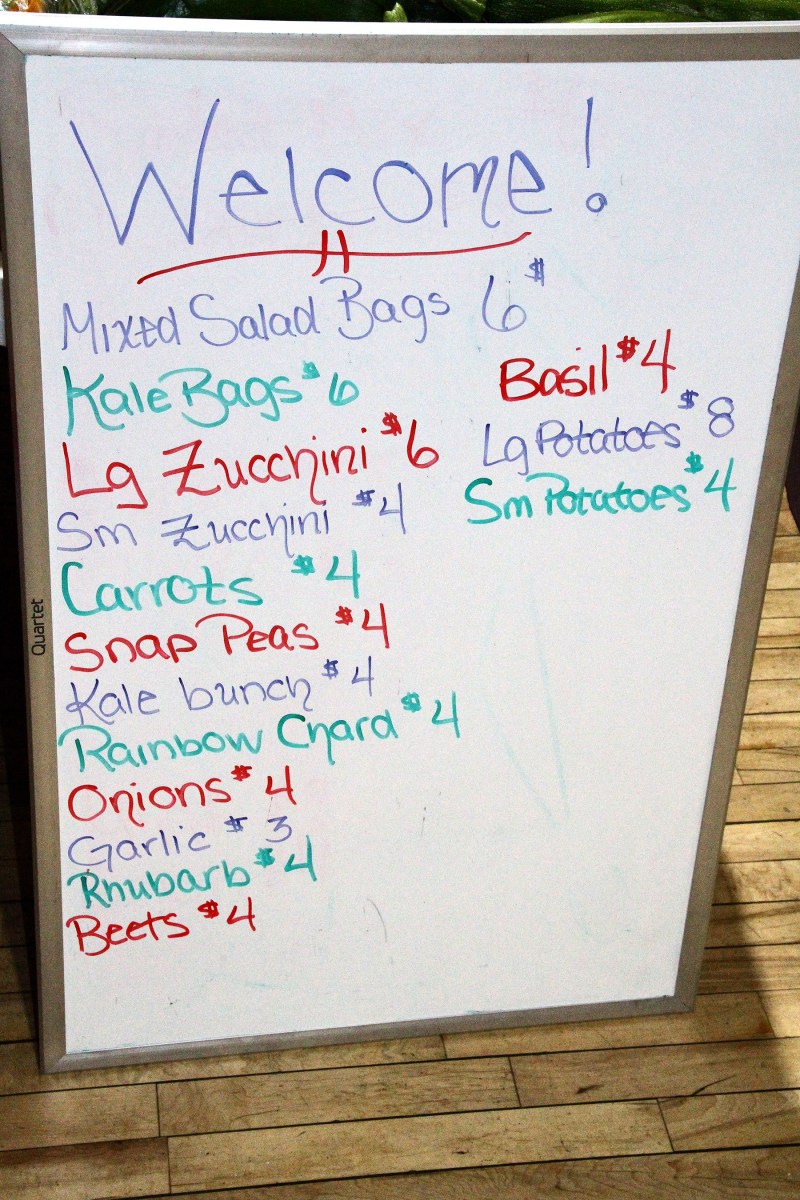 Welcome!
Mixed Salad Bags 6$
Kale Bags $6
Lg Zucchini $6
Sm Zucchini $4
Carrots $4
Snap Peas $4
Kale bunch $4
Rainbow Chard $4
Onions $4
Garlic $3
Rhubarb $4
Beets $4
Basil $4
Lg Potatoes $8
Sm Potatoes $4
Quartet